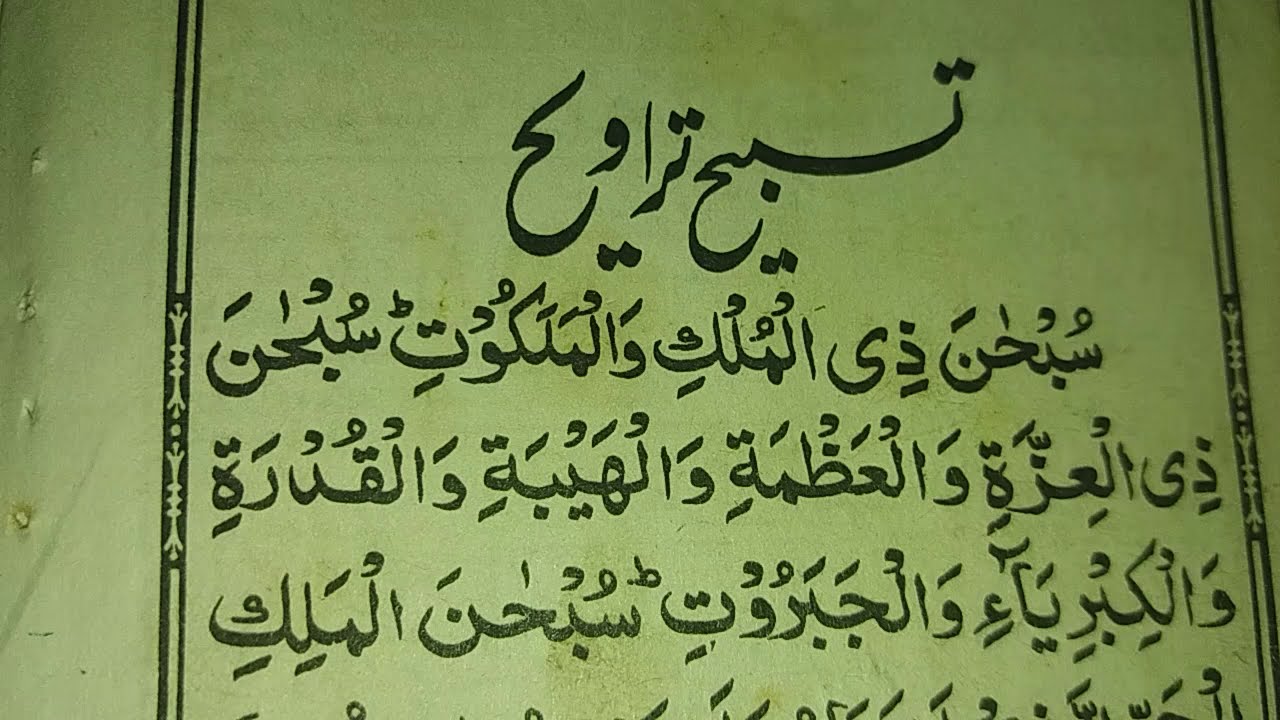 تسبیح تراویح
سُبْحٰنَ ذِی الْمُلْكِ وَالْمَلَكُوْتِ ؕ سُبْحٰنَ
ذِی الْعِزَّةِ وَالْعَظْمَةِ وَالْهَیْبَةِ وَالْقُدْرَةِ
وَالْكِبْرِیَآءِ وَالْجَبَرُوْتِ ؕ سُبْحٰنَ الْمَلِكِ